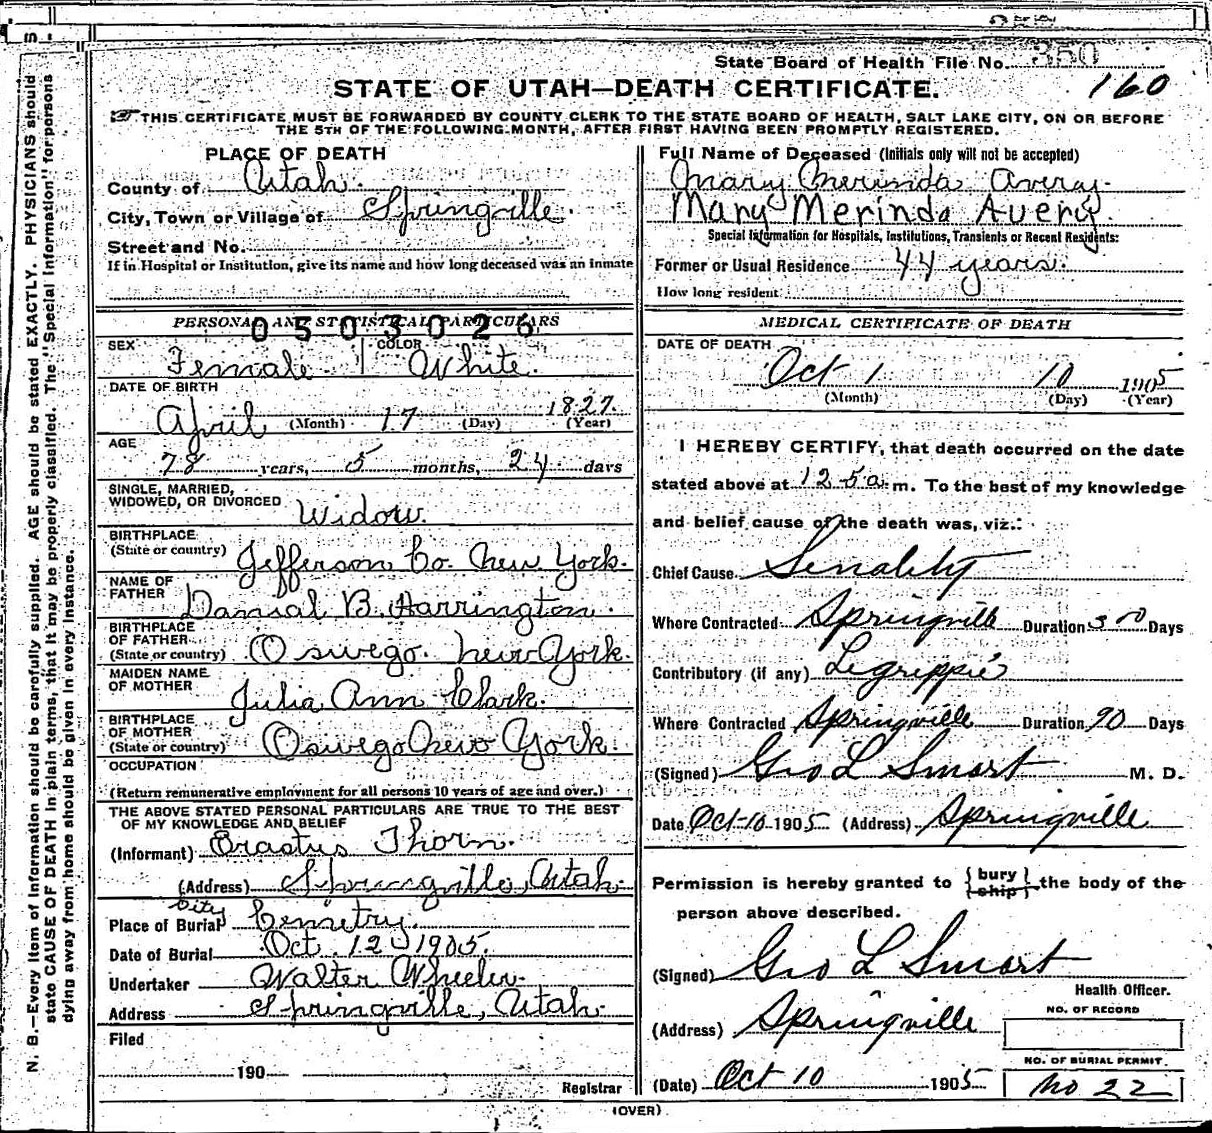 State Board of Health File No. 350
160
STATE OF UTAH—DEATH CERTIFICATE.
THIS CERTIFICATE MUST BE FORWARDED BY COUNTY CLERK TO THE STATE BOARD OF HEALTH, SALT LAKE CITY, ON OR BEFORE
THE 5TH OF THE FOLLOWING MONTH, AFTER FIRST HAVING BEEN PROMPTLY REGISTERED.
PLACE OF DEATH
County of Utah.
City, Town or Village of Springville.
Street and No.
If in Hospital or Institution, give its name and how long deceased was an inmate
PERSONAL AND STATISTICAL PARTICULARS
0503026
SEX
Female
COLOR
White.
DATE OF BIRTH
April (Month) 17 (Day) 1827. (Year)
AGE
78 years, 5 months, 24 days
SINGLE, MARRIED,
WIDOWED, OR DIVORCED Widow.
BIRTHPLACE
(State or country) Jefferson Co. New York.
NAME OF
FATHER Danial B. Harrington.
BIRTHPLACE
OF FATHER
(State or country) Oswego. New York.
MAIDEN NAME
OF MOTHER Julia Ann Clark.
BIRTHPLACE
OF MOTHER
(State or country) Oswego New York.
OCCUPATION
(Return remunerative employment for all persons 10 years of age and over.)
THE ABOVE STATED PERSONAL PARTICULARS ARE TRUE TO THE BEST
OF MY KNOWLEDGE AND BELIEF
(Informant) Orastus Thorn.
(Address) Springville, Utah.
Place of Burial City Cemetry.
Date of Burial Oct. 12 1905.
Undertaker Walter Wheeler.
Address Springville, Utah.
Filed
190
Registrar
Full Name of Deceased (Initials only will not be accepted)
Mary Merinda Averay.
Mary Merinda Avery.
Special Information for Hospitals, Institutions, Transients or Recent Residents:
Former or Usual Residence 44 years.
How long resident
MEDICAL CERTIFICATE OF DEATH
DATE OF DEATH
Oct 10 1905
(Month) (Day) (Year)
I HEREBY CERTIFY, that death occurred on the date
stated above at 12 5 a m. To the best of my knowledge
and belief cause of the death was, viz.:
Chief Cause Senality
Where Contracted Springville Duration 30 Days
Contributory (if any) Legrippie
Where Contracted Springville Duration 90 Days
(Signed) Geo L Smart M. D.
Date Oct 10 1905 (Address) Springville
Permission is hereby granted to {bury / ship} the body of the
person above described.
(Signed) Geo L Smart
Health Officer.
(Address) Springville
NO. OF RECORD
NO. OF BURIAL PERMIT
No 22
(Date) Oct 10 1905
(OVER)
N. B.—Every item of information should be carefully supplied. AGE should be stated EXACTLY. PHYSICIANS should
state CAUSE OF DEATH in plain terms, that it may be properly classified. The "Special Information" for persons
dying away from home should be given in every instance.